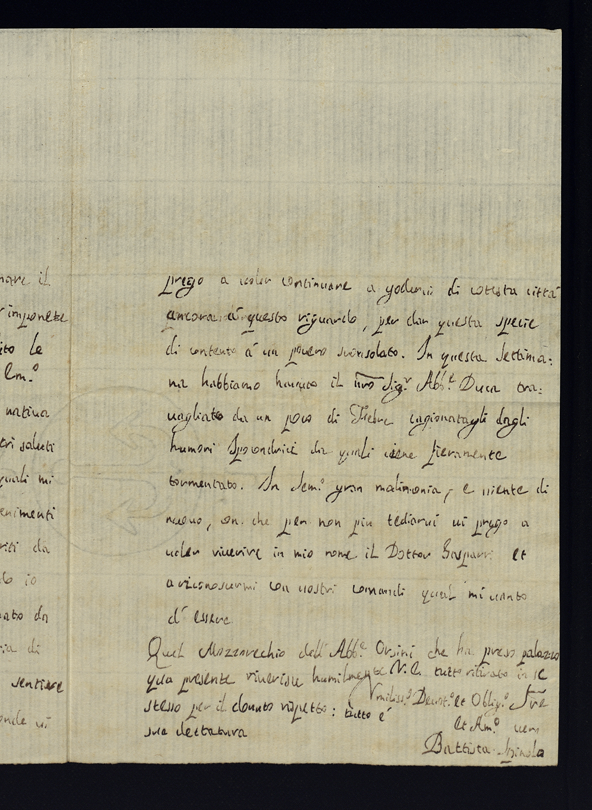 nare il
imponete
ito le
Em.º
nativa
tri saluti
quali mi
enimenti
riti da
do io
ato da
ria di
sentire
onde vi
prego a voler continuare a godervi di cotesta città
ancora à questo riguardo, per dar questa specie
di contento à un povero sconsolato. In questa settima:
na habbiamo havuto il nro Sig.r Abb.e Duca tra:
vagliato da un poco di Febre cagionatagli dagli
humori Ipocondrici da quali viene fieramente
tormentato. In gran malinconia, e niente di
nuovo, on che per non più tediarvi vi prego a
voler riverire in mio nome il Dottor Gasparri et
a riconoscermi con vostri comandi qual mi vanto
d'essere
Quel Mozzorecchio dell'Abb.e Orsini che ha preso palazzo
qua presente riverisce humilmente V. S. tutto ritirato in se
stesso per il dovuto rispetto: tutto è
sua dettatura
Devot.º et Oblig.º Sre
et Am.º vero
Battista Spinola